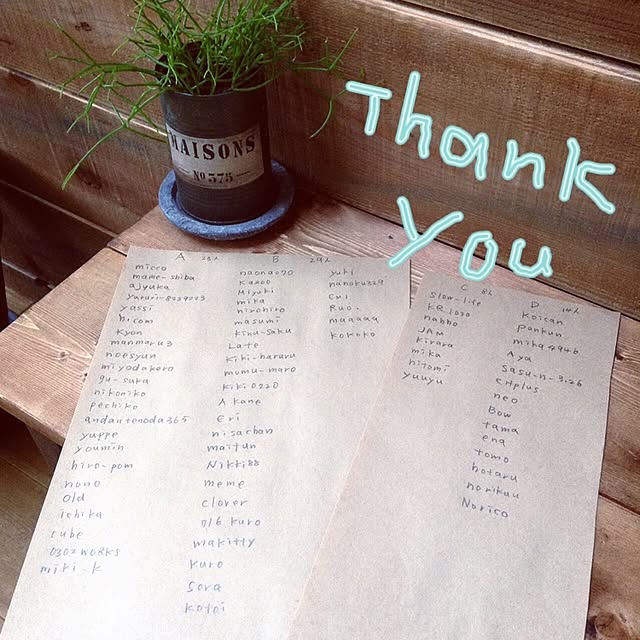 MAISONS
No 375
Thank
You
A
micro
mame-shiba
ajyuka
yassi
hicom
kyon
manmaru3
noesyun
miyodakero
gu-suka
nikoniko
pechiko
andantenoda365
yuppe
youmin
hiro-pom
nono
old
ichika
cube
0302WORKS
miki-k
B 29人
naonao70
kazoo
Miyuki
mika
hirohiro
masumi
kinu-saku
Late
kiki-haruru
mumu-maro
kiki0220
Akane
Eri
nisachan
maitun
Nikki88
meme
clover
716kuro
makitty
kuro
sora
kotoi
yuki
nanoku329
cui
Ruo.
maaaaa
kokoko
C 8人
slow-life
KR.1030
nabbo
JAM
kirara
mika
hitomi
yuuyu
D
koican
ponkun
mika4946
Aya
sasu-n-3.26
enplus
neo
Bow
tama
ena
tomo
hotaru
norikuu
Norico